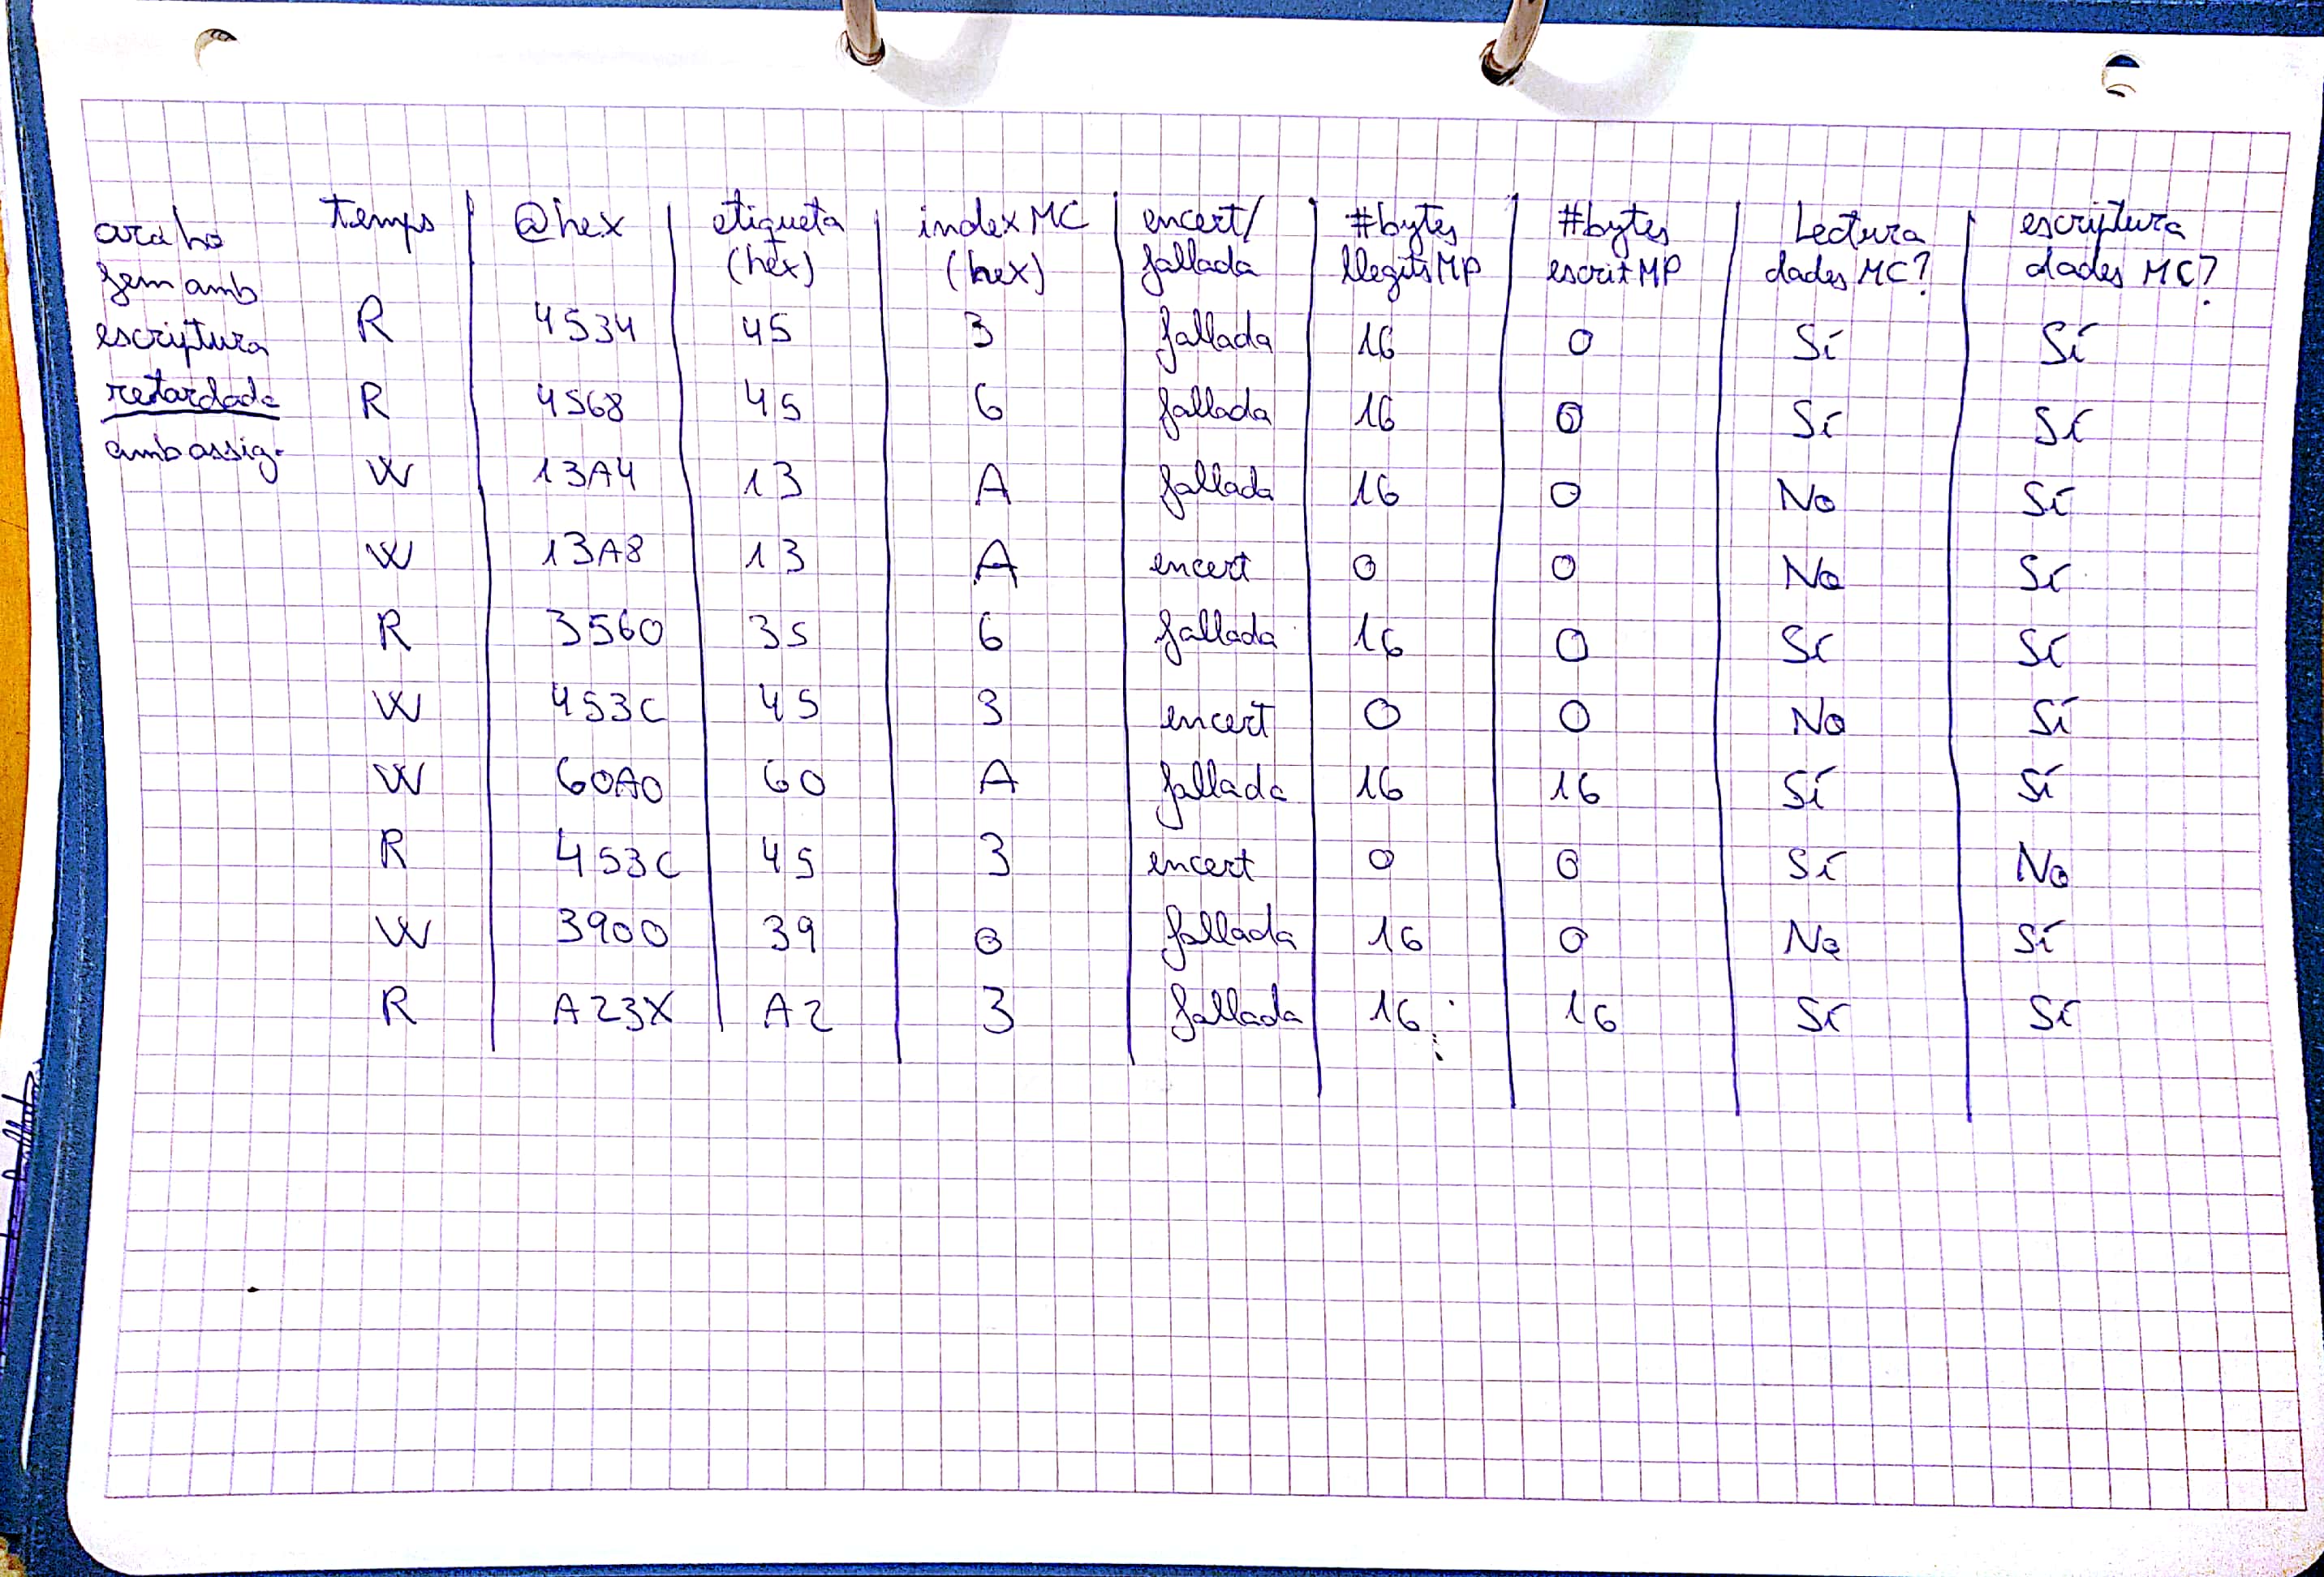 ara ho
fem amb
escriptura
retardada
amb assig.
temps @hex etiqueta (hex) index MC (hex) encert/ fallada #bytes llegits MP #bytes escrit MP Lectura dades MC? escriptura dades MC?
R 4534 45 3 fallada 16 0 Sí Sí
R 4568 45 6 fallada 16 0 Sí Sí
W 13A4 13 A fallada 16 0 No Sí
W 13A8 13 A encert 0 0 No Sí
R 3560 35 6 fallada 16 0 Sí Sí
W 453C 45 3 encert 0 0 No Sí
W 60A0 60 A fallada 16 16 Sí Sí
R 453C 45 3 encert 0 0 Sí No
W 3900 39 0 fallada 16 0 No Sí
R A23X A2 3 fallada 16 16 Sí Sí